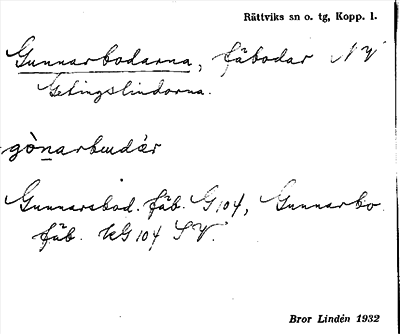 Rättviks sn o. tg, Kopp. l.
Gunnarbodarna, fäbodar NV
Getingslindorna.
gònarbuđàr
Gunnarsbod. fäb. G 104, Gunnarbo
fäb. kG 104 SV.
Bror Lindén 1932